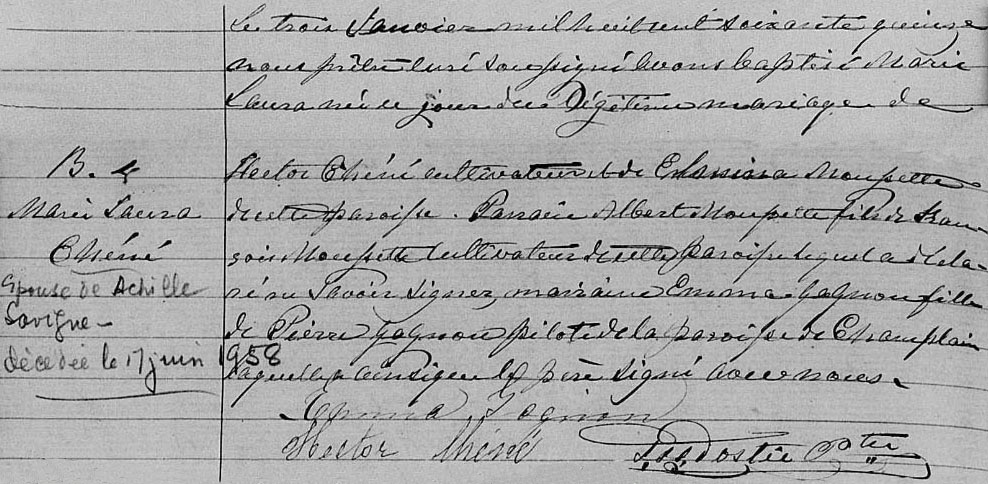 Le trois Janvier mil huit cent soixante quinze
nous prêtre curé soussigné avons baptisé Marie
Laura née ce jour du légitime mariage de
B. 4
Marie Laura
Chéné
Epouse de Achille
Lavigne-
décédée le 17 juin 1958
Hector Chéné cultivateur et de Mouffette
de cette paroisse. Parrain Albert Mouffette fils de Fran-
çois Mouffette cultivateur de cette paroisse lequel a décla-
ré ne savoir signer, marraine Emma Gagnon fille
de Pierre Gagnon pilote de la paroisse de Champlain
laquelle ainsi que le père signé avec nous.
Emma Gagnon
Hector Chéné
Dostie Ptre